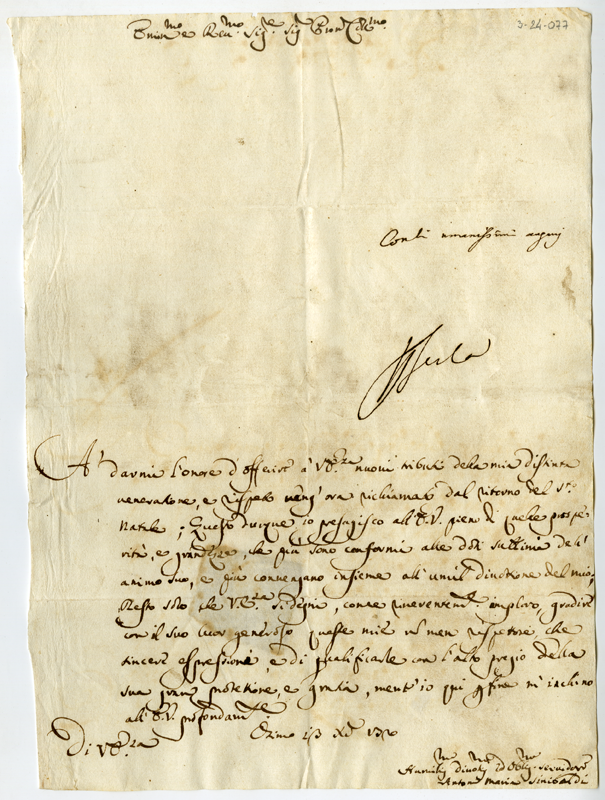 3-24-077
Emin.mo e Rev.mo Sig.re Sig.r Pron Col.mo
Conti umanissimi auguri
A' darmi l'onore d'offerire à V.E.za nuovi tributi della mia distinta
veneratione, e rispetto veng' ora richiamato dal ritorno del S.to
Natale; Questo dunque io presagisco all'E.V. pieno di quelle prospe-
rità, e grandezze, che più sono conformi alle doti sublimi dell'
animo suo, e più convengano insieme all'umil divotione del mio,
Resto solo che V.E.za si degni, come riverentem.te imploro, gradire
con il suo cuor generoso queste mie no men rispettose, che
sincere espressioni, e di qualificarle con l'alto pregio della
sua gran protetione, e gratia, ment'io qui per fine m'inchino
all'E.V. profondam.te
Di V.E.za
Osimo 13 Xbre
Humiliss.mo divotiss.mo ed Obblig.mo servidore
Anton Maria Sinibaldi